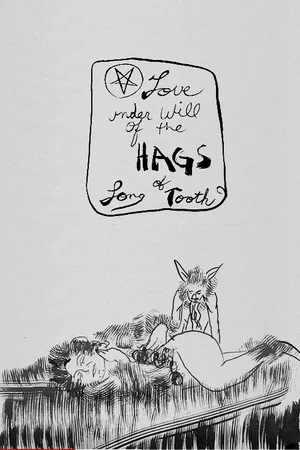 Love
under Will
of the
HAGS
of
Long Tooth